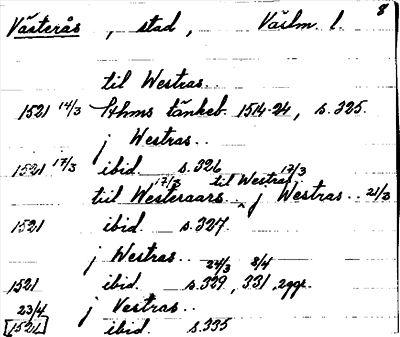 8
Västerås, stad, Västm. l.
til Westras..
1521 14/3 Sthms tänkeb. 1514-24, s. 325.
j Westras..
1521 17/3 ibid. s. 326
17/3 til Westras 17/3
tiil Westeraars ^ j Westras.. 21/3
1521 ibid. s. 327.
j Westras..
24/3 8/4
1521 ibid. s. 329, 331, 2ggr.
23/4 j Vestras..
[1521] ibid. s. 335